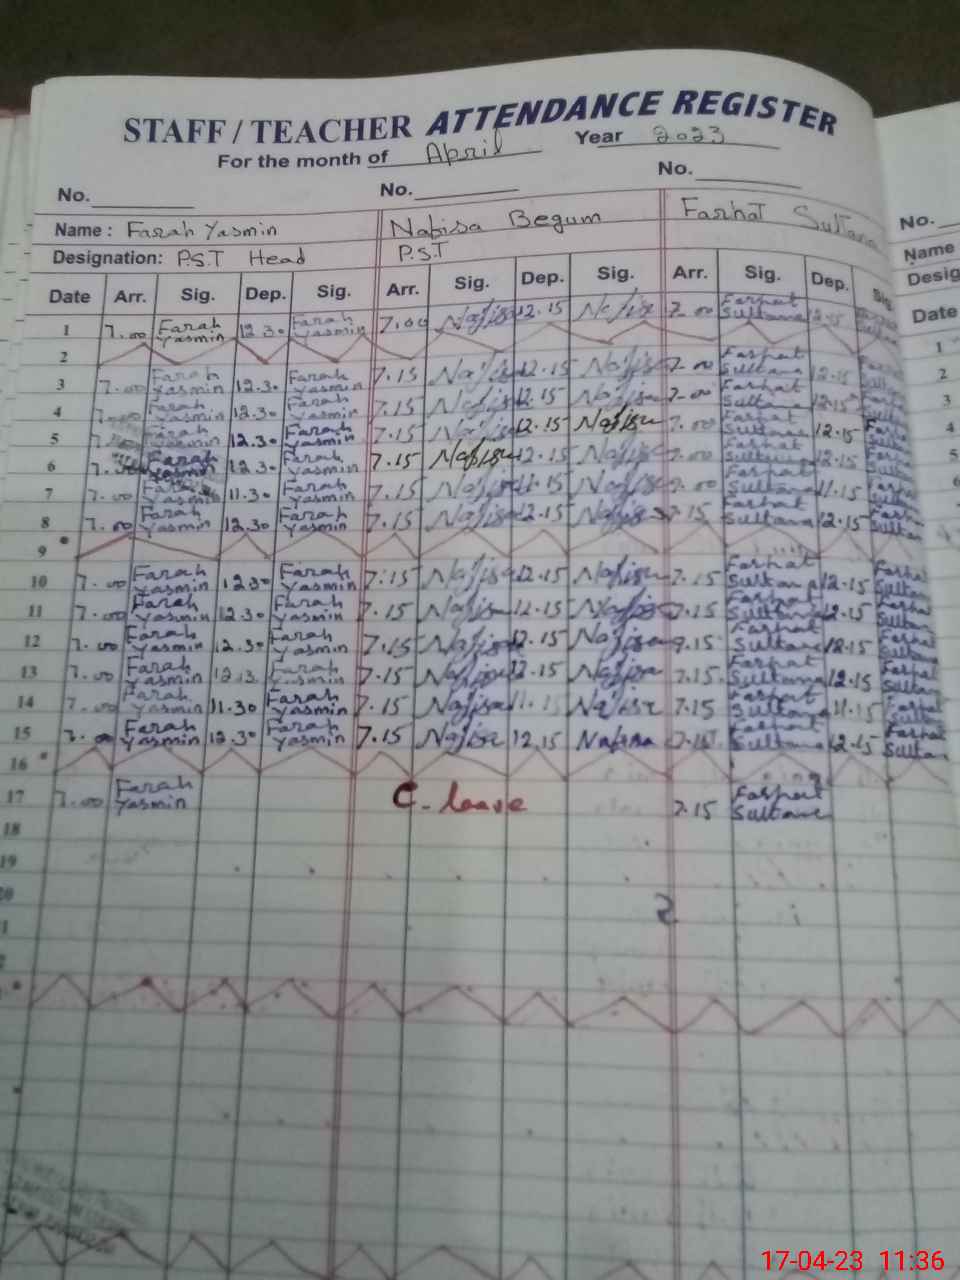 STAFF / TEACHER ATTENDANCE REGISTER
For the month of April Year 2023
No. No. No.
Name : Farah Yasmin Nafisa Begum Farhat Sultana
Designation: P.S.T Head P.S.T
Date Arr. Sig. Dep. Sig. Arr. Sig. Dep. Sig. Arr. Sig. Dep. Sig
1 7.00 Farah Yasmin 12.30 Farah Yasmin 7.00 Nafisa 12.15 Nafisa 7.00 Farhat Sultana 12.15
2
3 7.00 Farah Yasmin 12.30 Farah Yasmin 7.15 Nafisa 12.15 Nafisa 7.00 Farhat Sultana 12.15 Farhat Sultana
4 7.00 Farah Yasmin 12.30 Farah Yasmin 7.15 Nafisa 12.15 Nafisa 7.00 Farhat Sultana 12.15 Farhat Sultana
5 7. Farah Yasmin 12.30 Farah Yasmin 7.15 Nafisa 12.15 Nafisa 7.00 Farhat Sultana 12.15 Farhat Sultana
6 7.00 Farah Yasmin 12.30 Farah Yasmin 7.15 Nafisa 12.15 Nafisa 7.00 Farhat Sultana 12.15 Farhat Sultana
7 7.00 Farah Yasmin 11.30 Farah Yasmin 7.15 Nafisa 11.15 Nafisa 7.00 Farhat Sultana 11.15 Farhat Sultana
8 7.00 Farah Yasmin 12.30 Farah Yasmin 7.15 Nafisa 12.15 Nafisa 7.15 Farhat Sultana 12.15 Farhat Sultana
9
10 7.00 Farah Yasmin 12.30 Farah Yasmin 7:15 Nafisa 12.15 Nafisa 7.15 Farhat Sultana 12.15 Farhat Sultana
11 7.00 Farah Yasmin 12.30 Farah Yasmin 7.15 Nafisa 12.15 Nafisa 7.15 Farhat Sultana 12.15 Farhat Sultana
12 7.00 Farah Yasmin 12.30 Farah Yasmin 7.15 Nafisa 12.15 Nafisa 7.15 Farhat Sultana 12.15 Farhat Sultana
13 7.00 Farah Yasmin 12.3 Farah Yasmin 7.15 Nafisa 12.15 Nafisa 7.15 Farhat Sultana 12.15 Farhat Sultana
14 7.00 Farah Yasmin 11.30 Farah Yasmin 7.15 Nafisa 11.15 Nafisa 7.15 Farhat Sultana 11.15 Farhat Sultana
15 7.00 Farah Yasmin 12.30 Farah Yasmin 7.15 Nafisa 12.15 Nafisa 7.15 Farhat Sultana 12.15 Farhat Sulta
16
17 7.00 Farah Yasmin C-leave 7.15 Farhat Sultana
18
19
No.
Name
Desig
Date
1
2
3
4
5
17-04-23 11:36